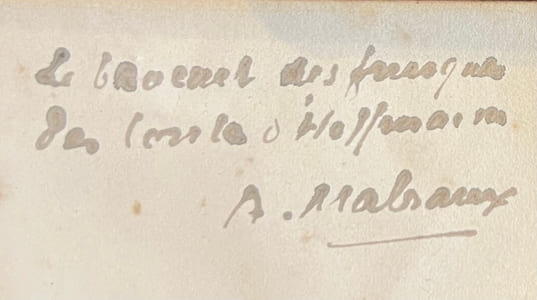 Le brocart des frusques
des contes d'Hoffmann
A. Malraux